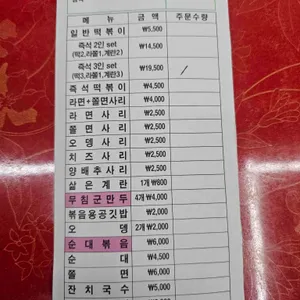 메 뉴 금 액 주문수량
일 반 떡 볶 이 ₩5,500
즉석 2인 set ₩14,500
(떡2,라쫄1,계란2)
즉석 3인 set ₩19,500
(떡3,라쫄1,계란3)
즉 석 떡 볶 이 ₩4,500
라면+쫄면사리 ₩4,000
라 면 사 리 ₩2,500
쫄 면 사 리 ₩2,500
오 뎅 사 리 ₩2,500
치 즈 사 리 ₩2,500
양 배 추 사 리 ₩2,500
삶 은 계 란 1개 ₩800
무 침 군 만 두 4개 ₩4,000
볶음용공깃밥 ₩2,000
오 뎅 2개 ₩2,000
순 대 볶 음 ₩6,000
순 대 ₩4,500
쫄 면 ₩6,000
잔 치 국 수 ₩5,000